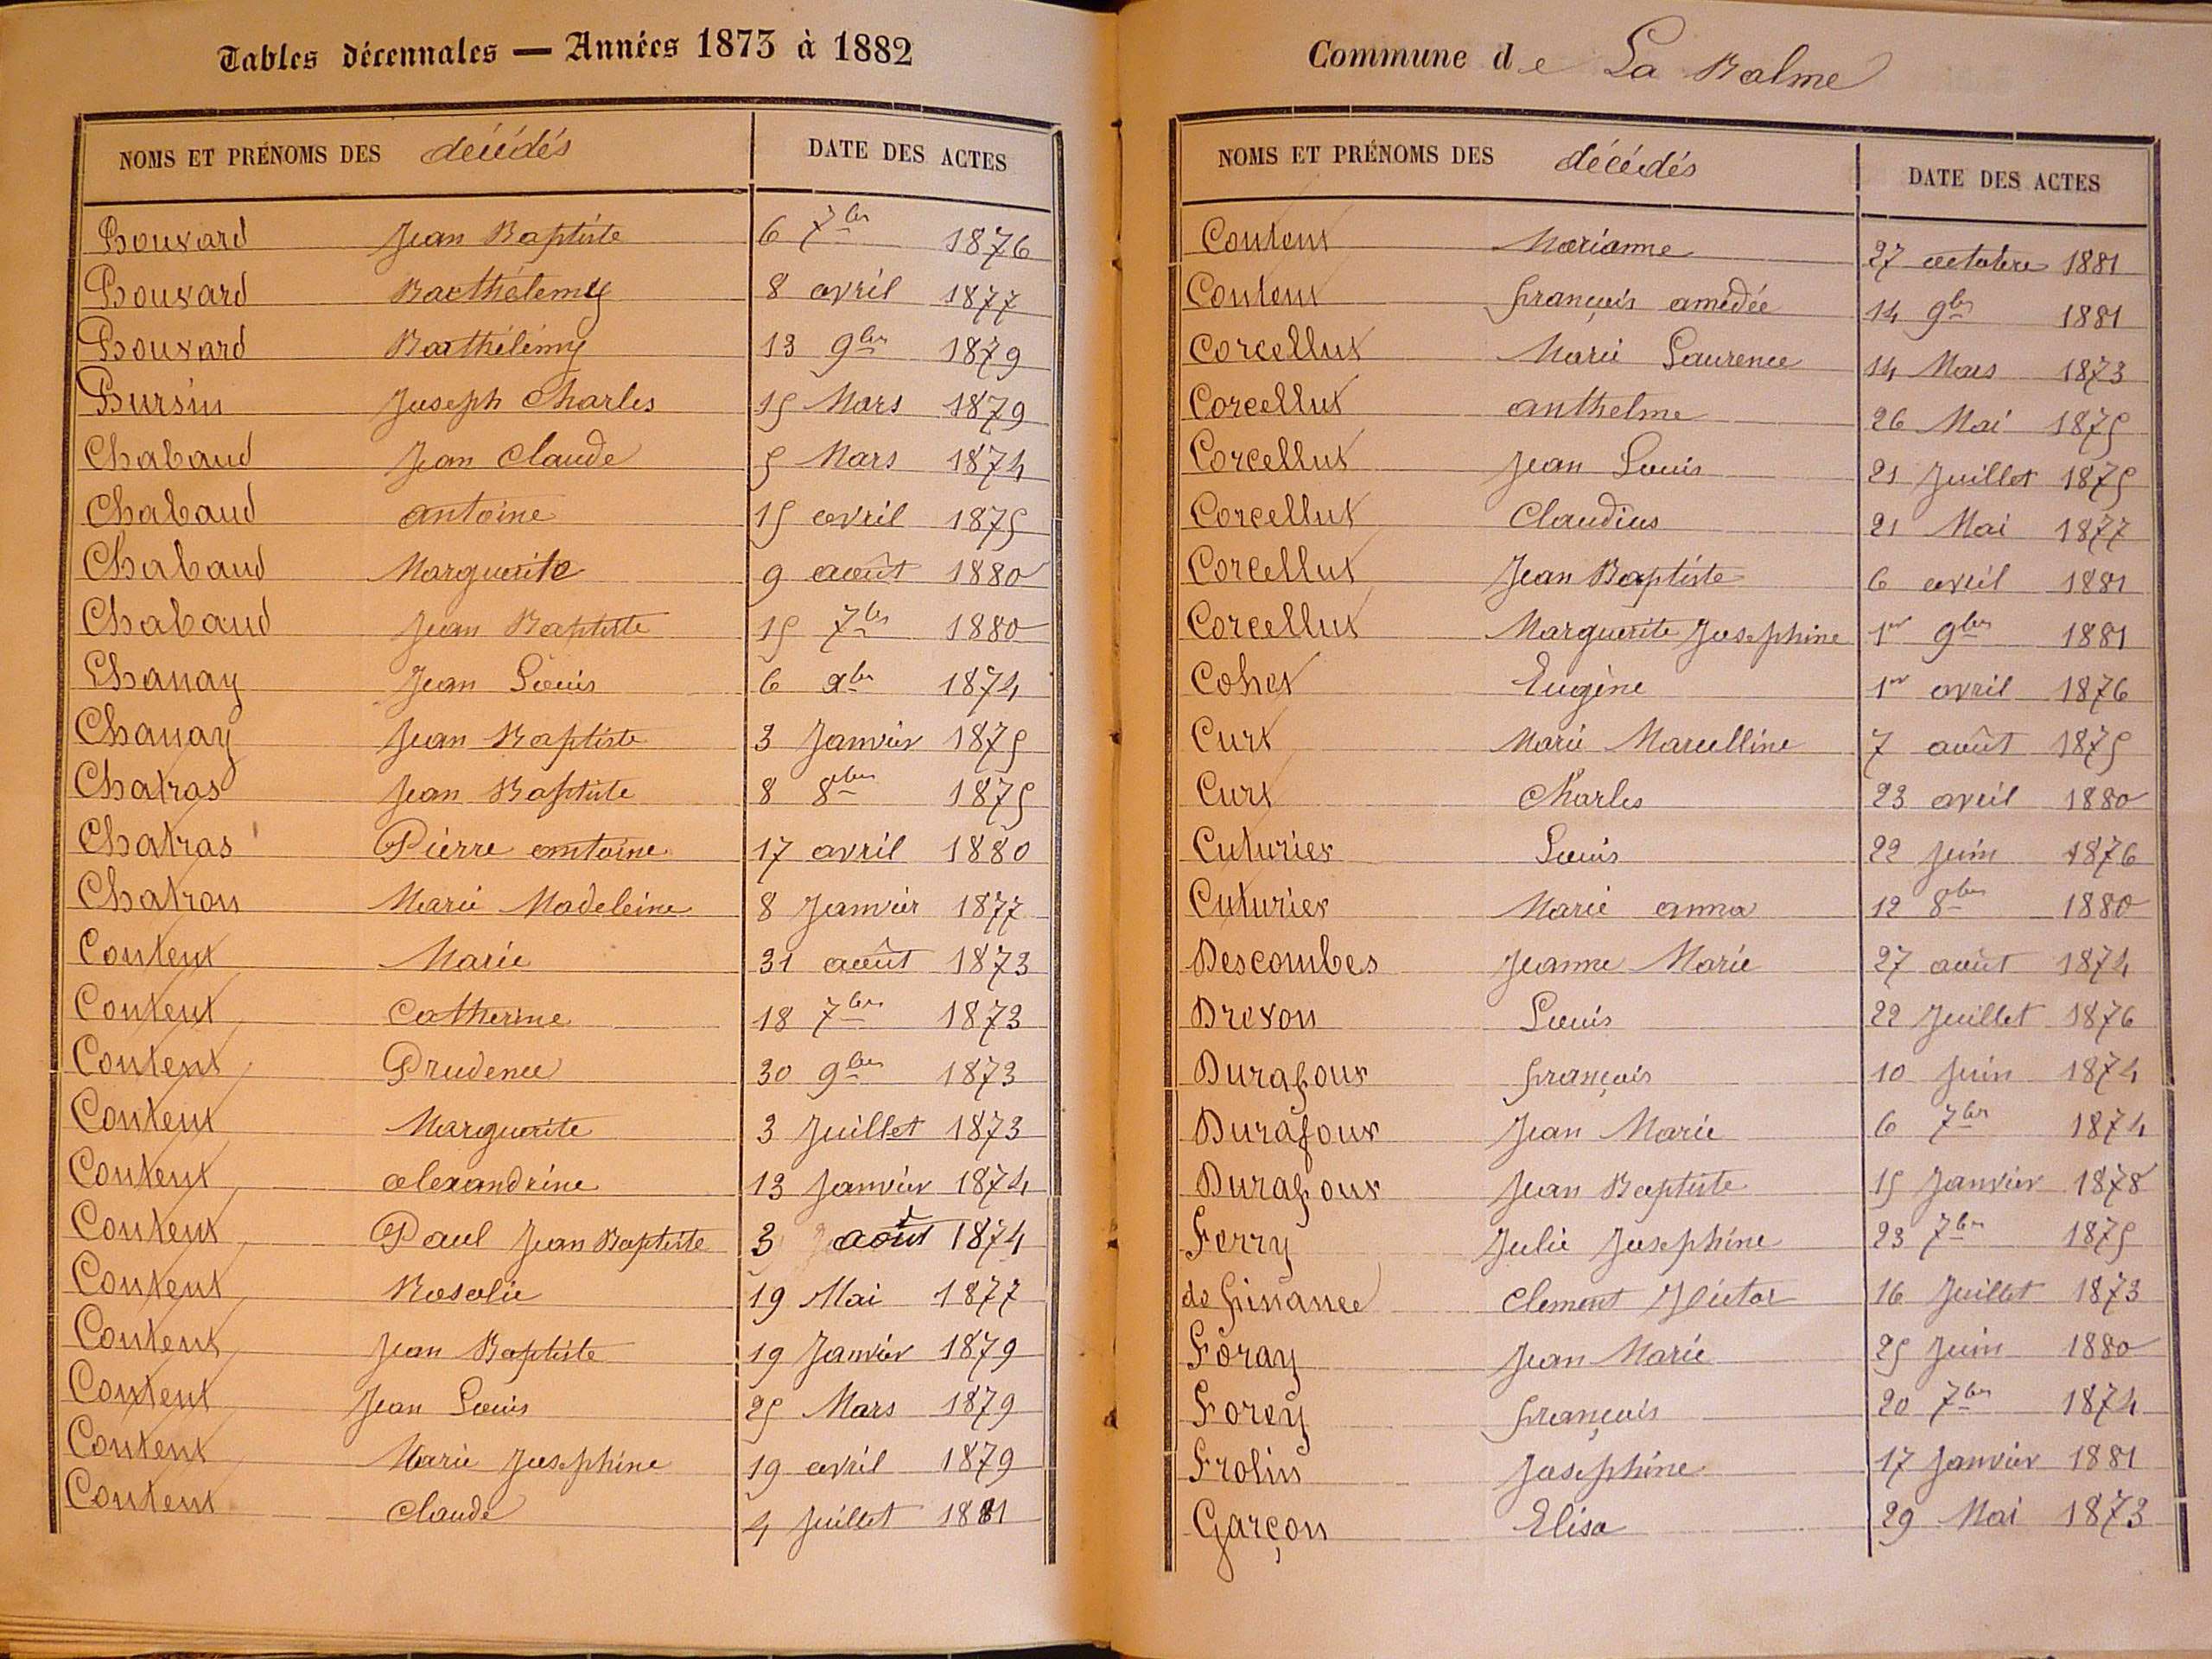 Tables décennales — Années 1873 à 1882
NOMS ET PRÉNOMS DES décédés DATE DES ACTES
Bouvard Jean Baptiste 6 7bre 1876
Bouvard Barthélemy 8 avril 1877
Bouvard Barthélémy 13 9bre 1879
Bursin Joseph Charles 15 Mars 1879
Chabaud Jean Claude 5 Mars 1874
Chabaud antoine 15 avril 1875
Chabaud Marguerite 9 août 1880
Chabaud Jean Baptiste 15 7bre 1880
Chanay Jean Louis 6 xbre 1874
Chanay Jean Baptiste 3 Janvier 1875
Chatras Jean Baptiste 8 8bre 1875
Chatras Pierre antoine 17 avril 1880
Chatron Marie Madeleine 8 Janvier 1877
Content Marie 31 août 1873
Content Catherine 18 7bre 1873
Content Prudence 30 9bre 1873
Content Marguerite 3 Juillet 1873
Content alexandrine 13 Janvier 1874
Content Paul Jean Baptiste 3 août 1874
Content Rosalie 19 Mai 1877
Content Jean Baptiste 19 Janvier 1879
Content Jean Louis 25 Mars 1879
Content Marie Josephine 19 avril 1879
Content Claude 4 Juillet 1881
Commune de La Balme
NOMS ET PRÉNOMS DES décédés DATE DES ACTES
Content Marianne 27 octobre 1881
Content françois amedée 14 9bre 1881
Corcellut Marie Laurence 14 Mars 1873
Corcellut anthelme 26 Mai 1875
Corcellut Jean Louis 21 Juillet 1875
Corcellut Claudius 21 Mai 1877
Corcellut Jean Baptiste 6 avril 1881
Corcellut Marguerite Josephine 1er 9bre 1881
Cohet Eugène 1er avril 1876
Curt Marie Marcelline 7 août 1875
Curt Charles 23 avril 1880
Cuturier Louis 22 Juin 1876
Cuturier Marie anna 12 8bre 1880
Descombes Jeanne Marie 27 août 1874
Drevon Louis 22 Juillet 1876
Durafour françois 10 Juin 1874
Durafour Jean Marie 6 7bre 1874
Durafour Jean Baptiste 15 Janvier 1878
Ferry Julie Josephine 23 7bre 1875
de finance Clement Victor 16 Juillet 1873
Foray Jean Marie 25 Juin 1880
Forey françois 20 7bre 1874
Frolin Josephine 17 Janvier 1881
Garçon Elisa 29 Mai 1873